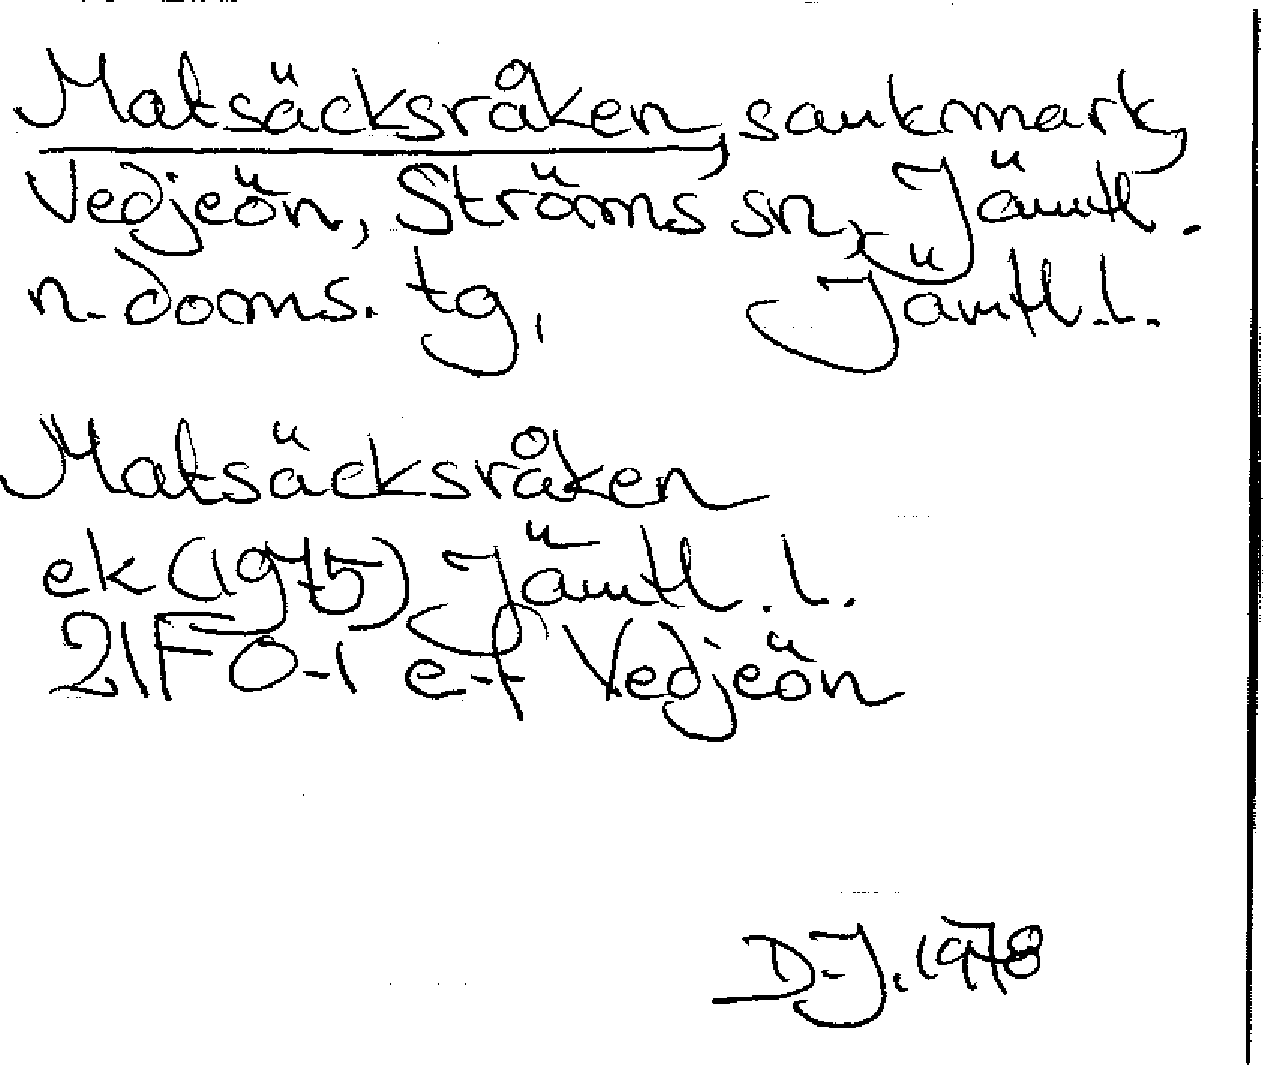 Matsäcksråken, sankmark,
Vedjeön, Ströms sn, Jämtl.
n. doms. tg, Jämtl.l.
Matsäcksråken
ek (1975) Jämtl. l.
21F 0-1 e-f Vedjeön
D-J. 1978